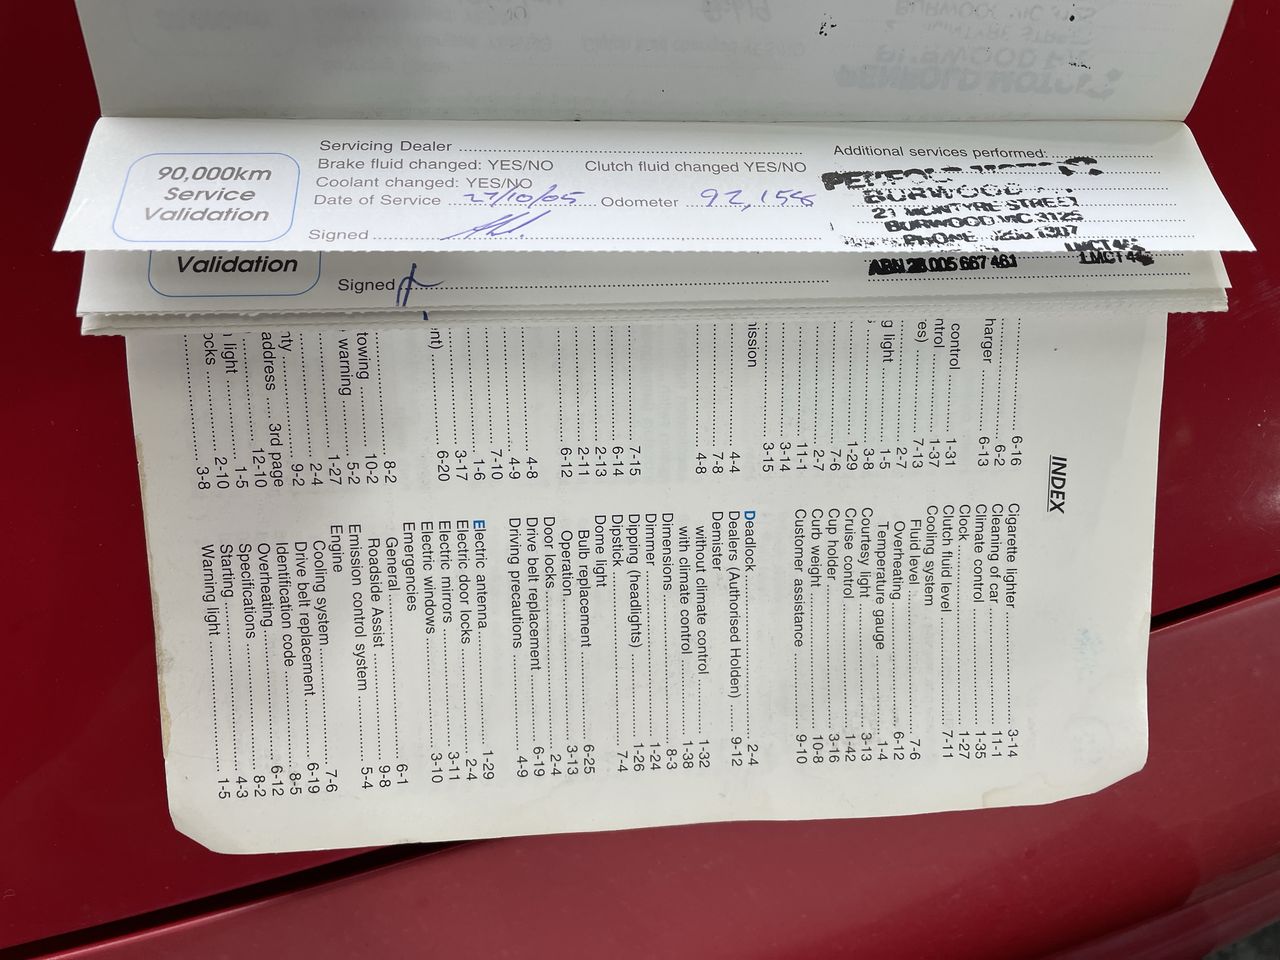 90,000km
Service
Validation
Servicing Dealer
Brake fluid changed: YES/NO Clutch fluid changed YES/NO
Coolant changed: YES/NO
Date of Service 27/10/05 Odometer 92,158
Signed
Additional services performed:
BURWOOD
21 MCINTYRE STREET
BURWOOD VIC 3125
PHONE
LMCT
ABN 28 005 667 461
LMCT
Validation
Signed
INDEX
6-16
harger 6-2
6-13
control 1-31
ntrol 1-37
es) 7-13
2-7
g light 1-5
3-8
1-29
7-6
2-7
11-1
3-14
3-15
ission
4-4
7-8
4-8
7-15
6-14
2-13
2-11
6-12
4-8
4-9
7-10
1-6
3-17
nt) 6-20
8-2
towing 10-2
5-2
warning 1-27
2-4
nty 9-2
address 3rd page
12-10
1-5
light 2-10
ocks 3-8
Cigarette lighter 3-14
Cleaning of car 11-1
Climate control 1-35
Clock 1-27
Clutch fluid level 7-11
Cooling system
Fluid level 7-6
Overheating 6-12
Temperature gauge 1-4
Courtesy light 3-13
Cruise control 1-42
Cup holder 3-16
Curb weight 10-8
Customer assistance 9-10
Deadlock 2-4
Dealers (Authorised Holden) 9-12
Demister
without climate control 1-32
with climate control 1-38
Dimensions 8-3
Dimmer 1-24
Dipping (headlights) 1-26
Dipstick 7-4
Dome light
Bulb replacement 6-25
Operation 3-13
Door locks 2-4
Drive belt replacement 6-19
Driving precautions 4-9
Electric antenna 1-29
Electric door locks 2-4
Electric mirrors 3-11
Electric windows 3-10
Emergencies
General 6-1
Roadside Assist 9-8
Emission control system 5-4
Engine
Cooling system 7-6
Drive belt replacement 6-19
Identification code 8-5
Overheating 6-12
Specifications 8-2
Starting 4-3
Warning light 1-5